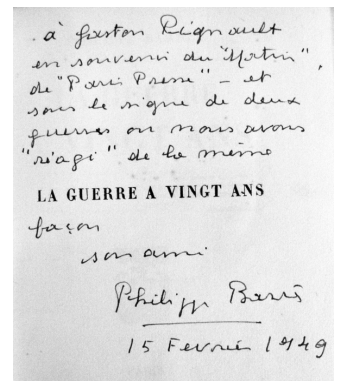 à Gaston Rignault
en souvenir du "Matin",
de "Paris Presse" – et
sous le signe de deux
guerres où nous avons
"réagi" de la même
LA GUERRE A VINGT ANS
façon
son ami
Philippe Barrès
15 Février 1949